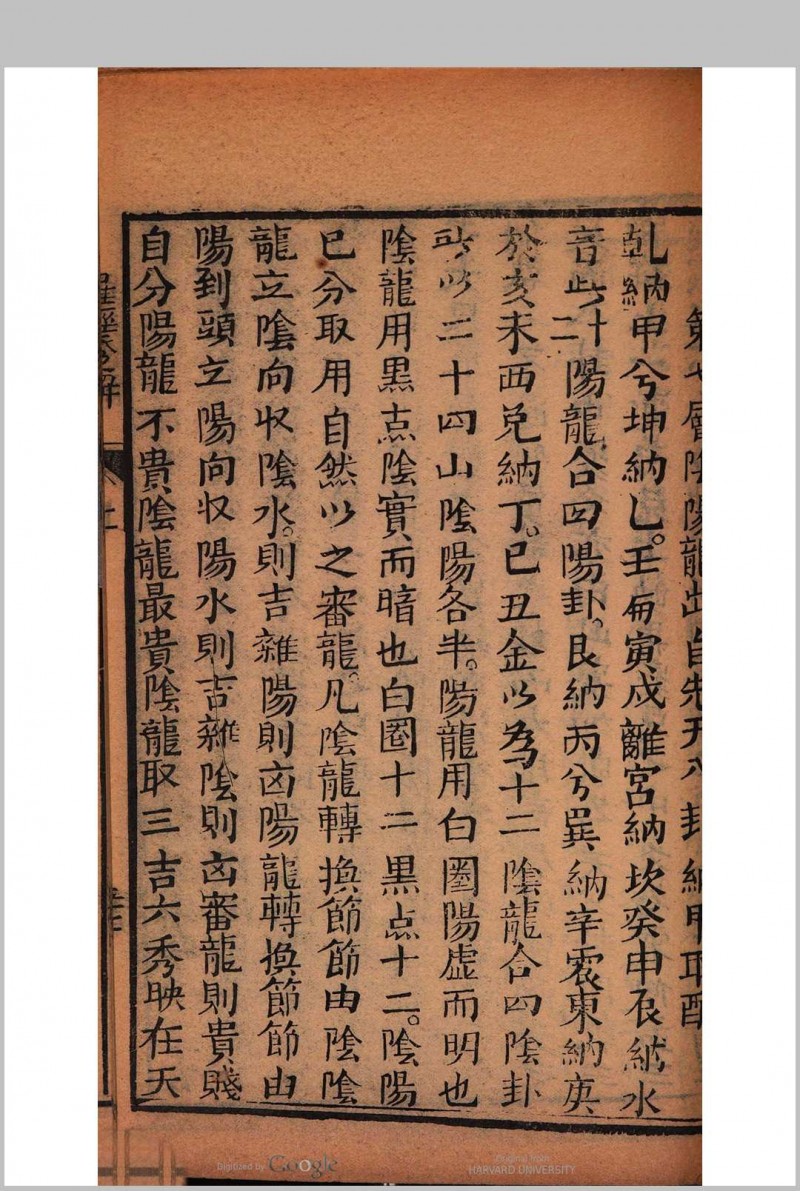 第七層陰陽龍出自先天八卦納甲取配
乹納甲兮坤納乚。壬丙寅戍離宮納坎癸申辰納水
音此十二陽龍合四陽卦。艮納丙兮巽納辛震東納庚
於亥未酉兌納丁。巳丑金以為十二陰龍合四陰卦
所以二十四山陰陽各半。陽龍用白圏陽虛而明也
陰龍用黒点陰實而暗也白圏十二黒点十二。陰陽
已分取用自然以之審龍。凡陰龍轉換節節由陰陰
龍立陰向收陰水。則吉雜陽則凶陽龍轉換節節由
陽到頭立陽向收陽水則吉雜陰則凶審龍則貴賤
自分陽龍不貴陰龍最貴陰龍取三吉六秀映在天
羅經參解
Digitized by Google
Original from
HARVARD UNIVERSITY